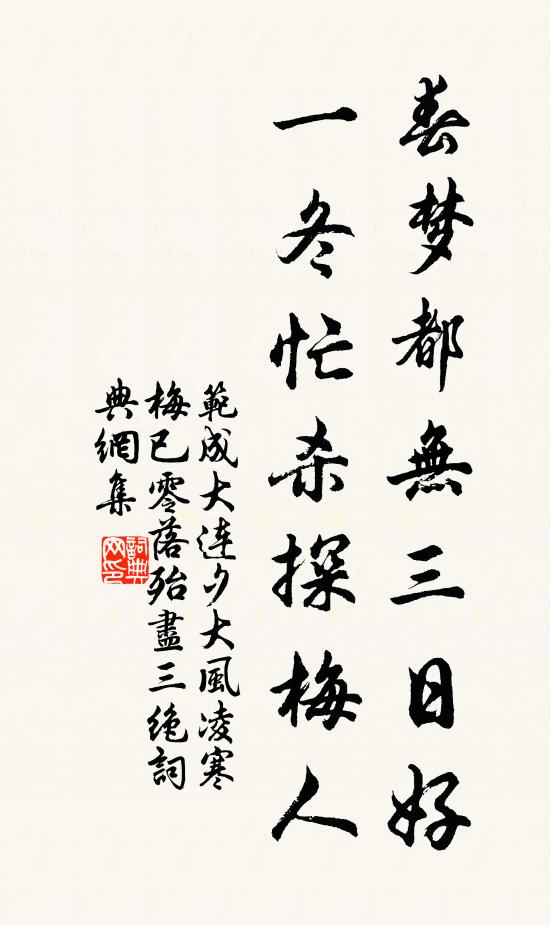 春梦都無三日好
一冬忙杀探梅人
範成大连夕大風凌寒
梅已零落殆盡三绝詞
典網集
詞典网印